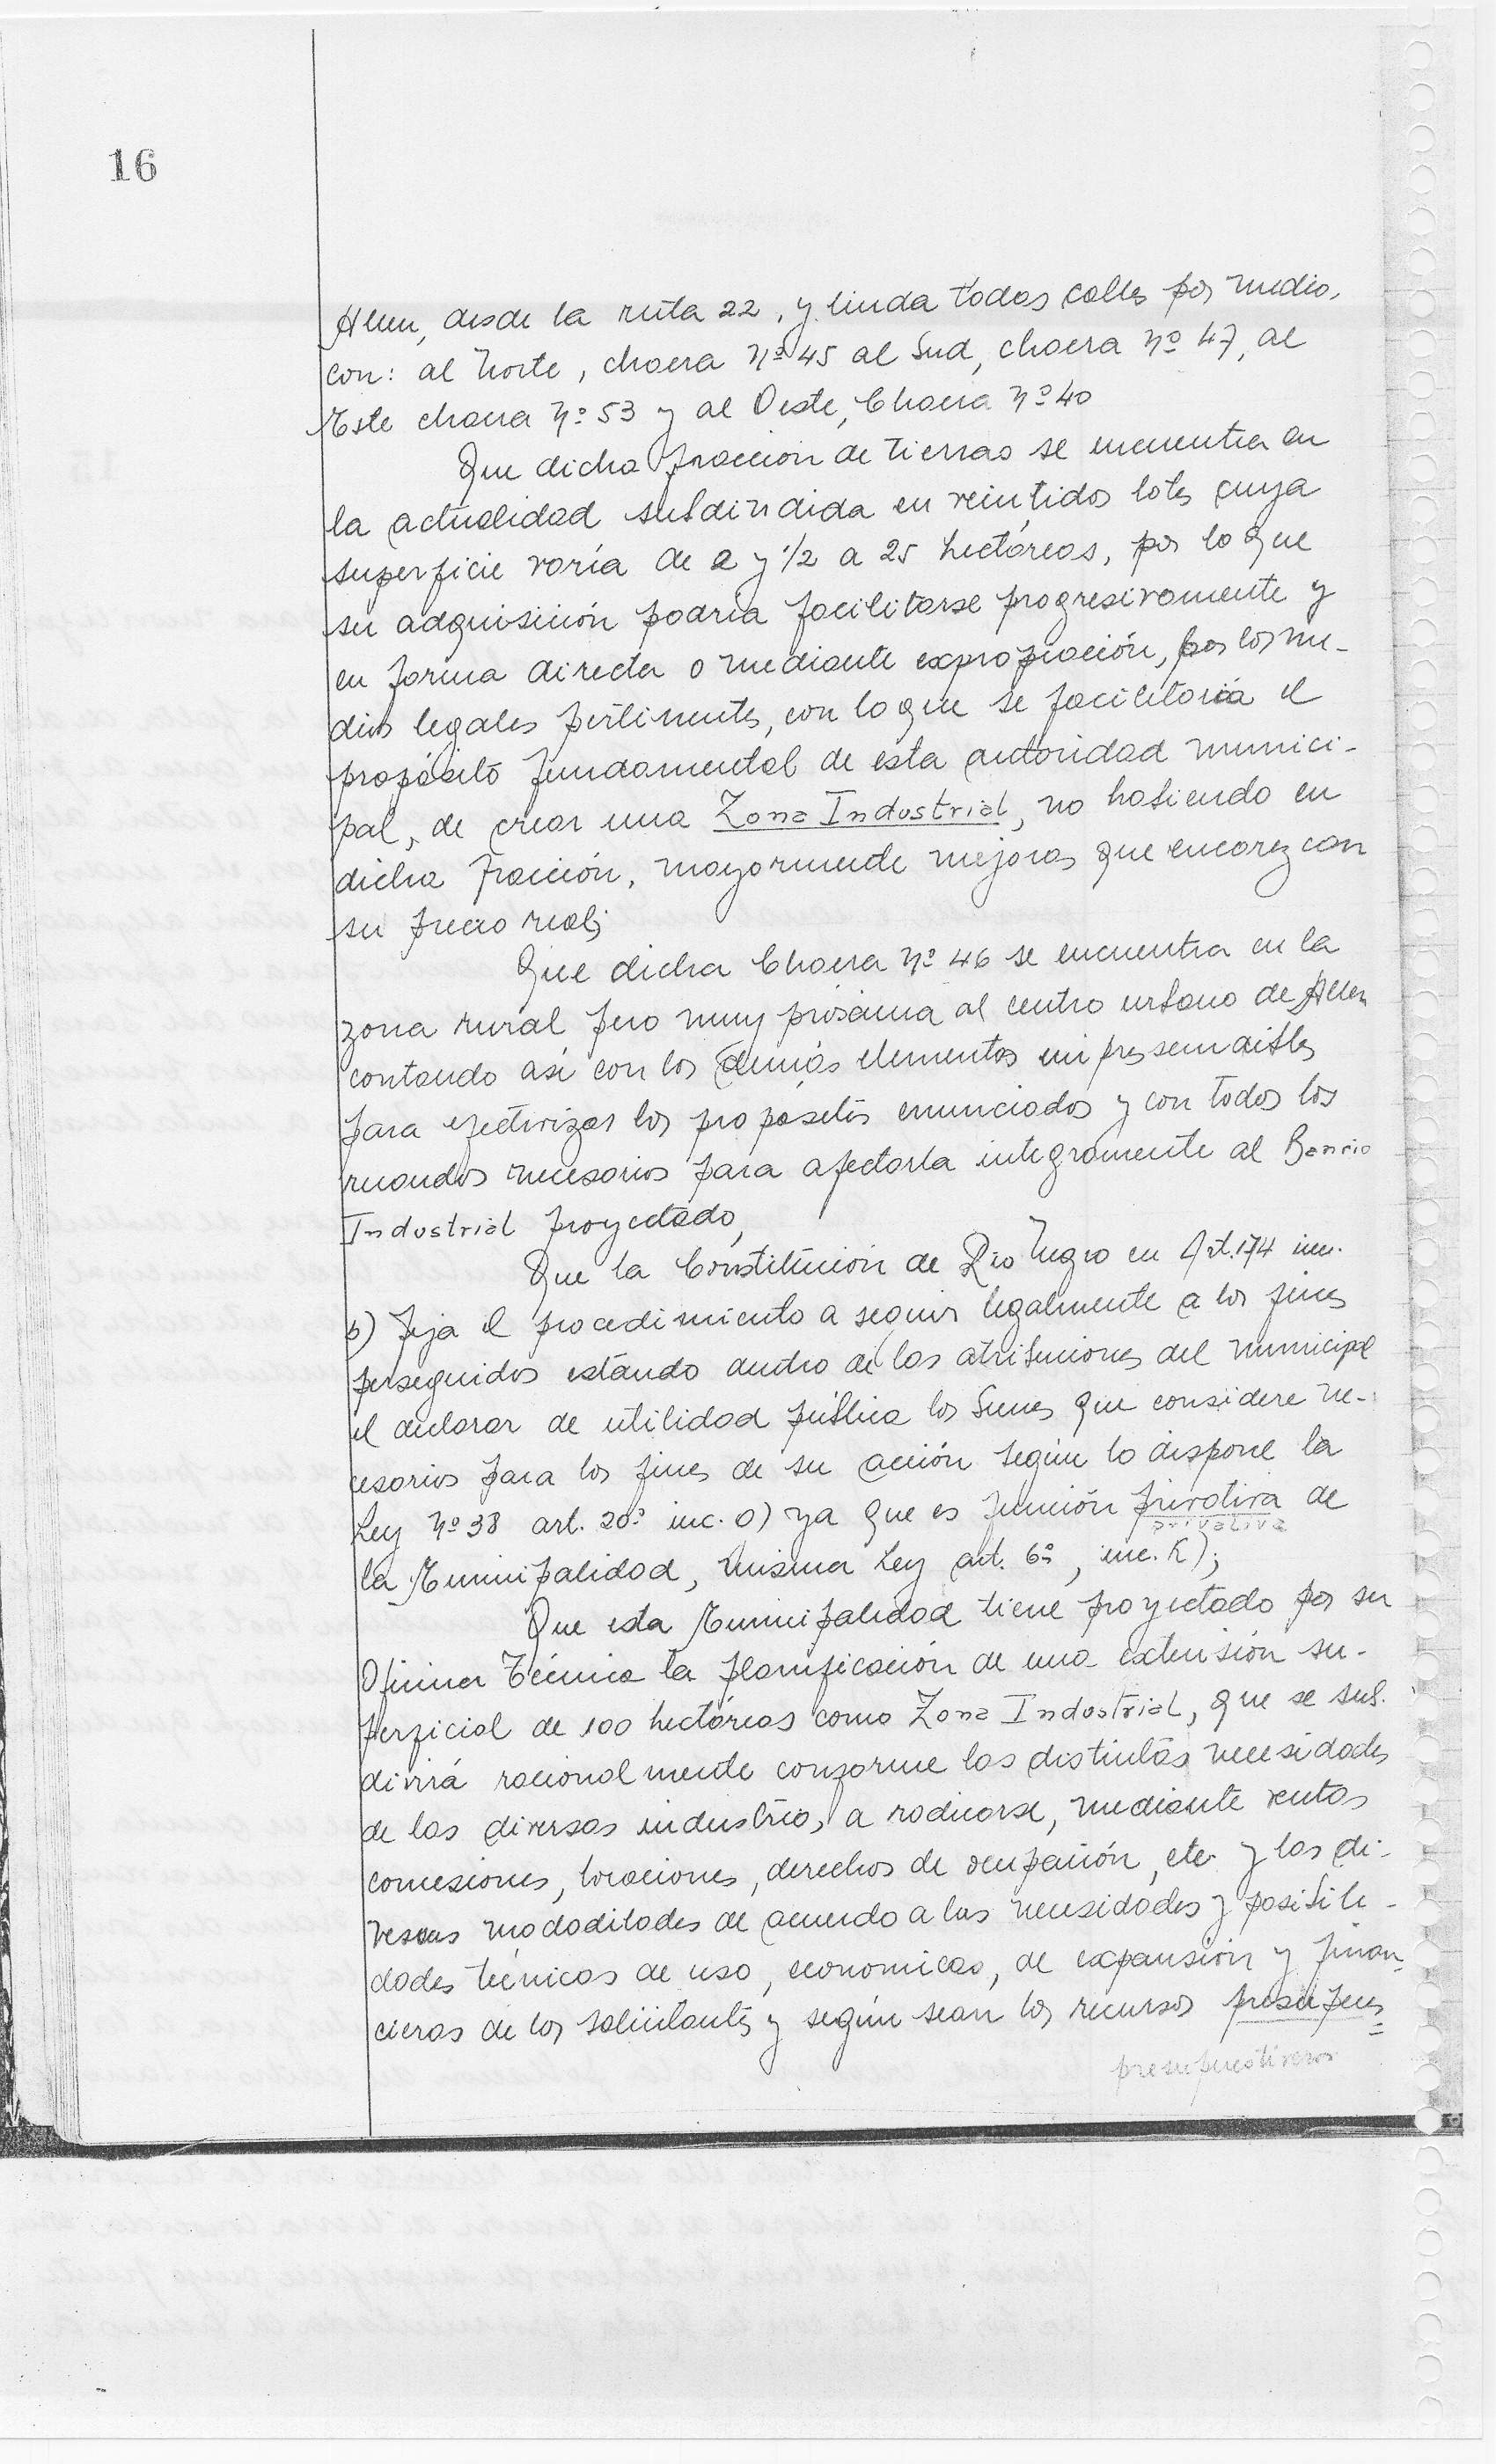 16
Allen, desde la ruta 22, y linda todas calles por medio,
con: al Norte, chacra Nº 45 al Sud, chacra Nº 47, al
Este chacra Nº 53 y al Oeste, Chacra Nº 40
Que dicha fracción de tierras se encuentra en
la actualidad subdividida en veintidos lotes cuya
superficie varía de 2 y 1/2 a 25 hectáreas, por lo que
su adquisición podría facilitarse progresivamente y
en forma directa o mediante expropiación, por los me-
dios legales pertinentes, con lo que se facilitaría el
propósito fundamental de esta autoridad munici-
pal, de crear una Zona Industrial, no habiendo en
dicha fracción, mayormente mejoras que encarezcan
su precio real;
Que dicha Chacra Nº 46 se encuentra en la
zona rural pero muy próxima al centro urbano de Allen
contando así con los demás elementos impresindibles
para efectivizar los propósitos enunciados y con todos los
recaudos necesarios para afectarla integramente al Barrio
Industrial proyectado,
Que la Constitución de Río Negro en Art. 174 inc.
b) fija el procedimiento a seguir legalmente a los fines
perseguidos estando dentro de las atribuciones del municipal
el declarar de utilidad pública los bienes que considere ne-
cesarios para los fines de su acción según lo dispone la
Ley Nº 38 art. 20º inc. o) ya que es función privativa de
privativa
la Municipalidad, misma Ley art. 6º, inc. k);
Que esta Municipalidad tiene proyectado por su
Oficina Técnica la planificación de una extensión su-
perficial de 100 hectáreas como Zona Industrial, que se sub-
divirá racionalmente conforme las distintas necesidades
de las diversas industrias, a radicarse, mediante ventas
concesiones, locaciones, derechos de ocupación, etc. y las di-
versas modadilades de acuerdo a las necesidades y posibili-
dades técnicas de uso, economicas, de expansión y finan-
cieras de los solicitantes y según sean los recursos presupues
presupuestiveros